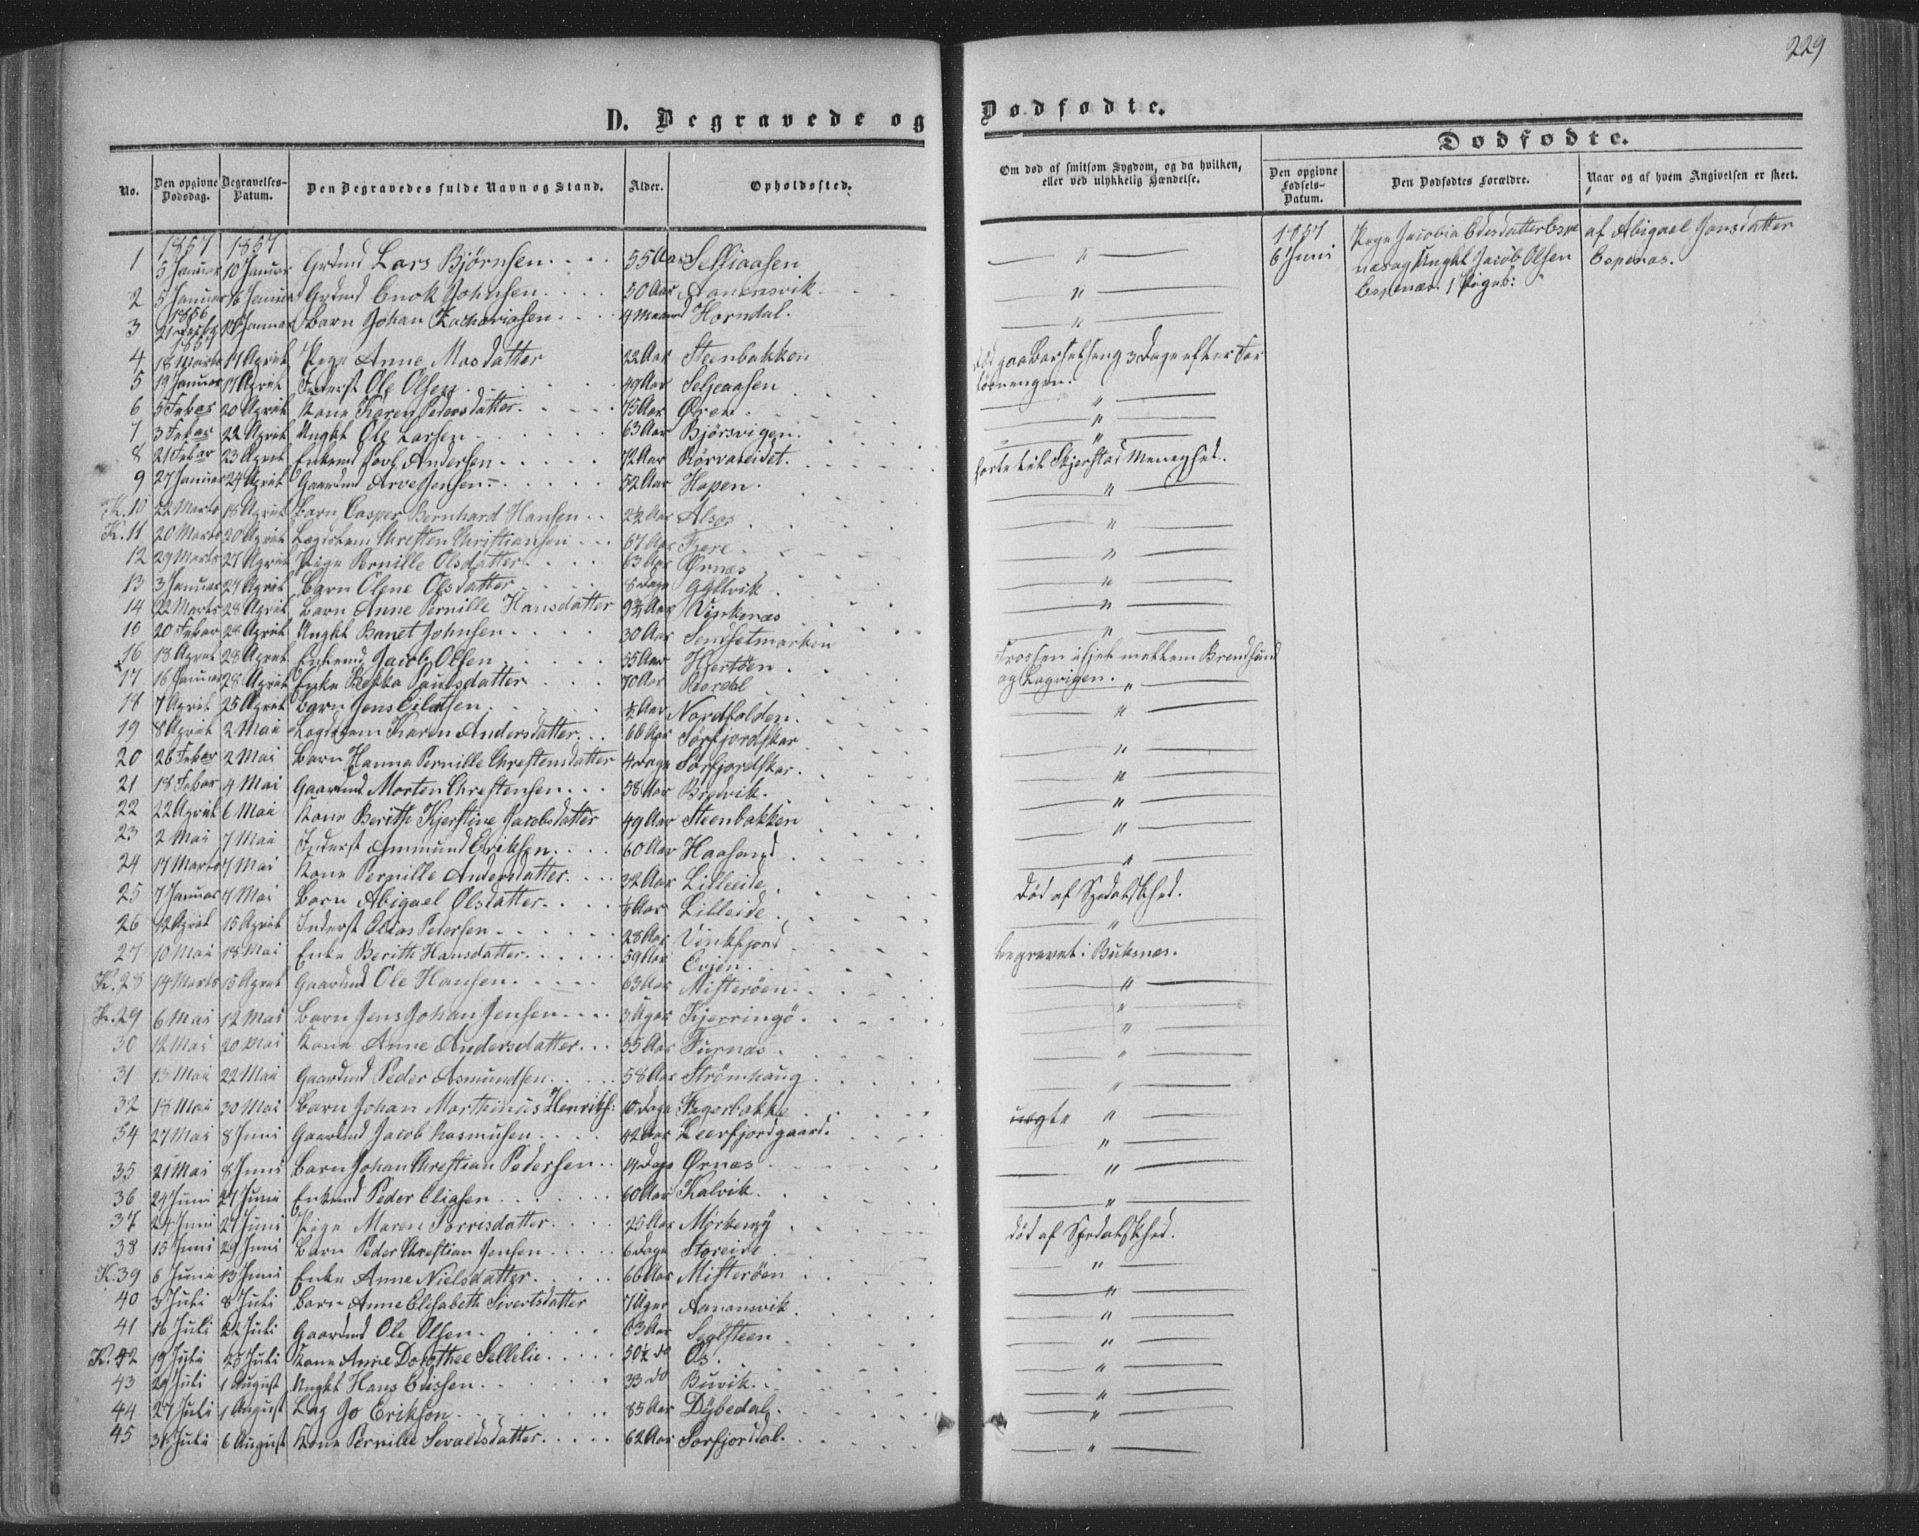 229
D. Begravede og Dødfødte.
Dødfødte.
No. Den opgivne Dødsdag. Begravelses-Datum. Den Begravedes fulde Navn og Stand. Alder. Opholdssted. Om død af smitsom Sygdom, og da hvilken, eller ved ulykkelig Hændelse. Den opgivne Fødsels-Datum. Den Dødfødtes Forældre. Naar og af hvem Angivelsen er skeet.
1857 1857
1 5 Januar 10 Januar Grdmd Lars Bjørnsen 55 Aar Seljeaasen "
2 5 Januar 16 Januar Grdmd Enok Johnsen 50 Aar Aanensvik "
1856
3 Januar Barn Johan Zachariasen 9 Maaned Horndal "
1857
4 18 Marts 17 April Pige Anne Masdatter 22 Aar Steenbakken Død paa Barselseng 3 Dage efter Forløsningen.
5 19 Januar 17 April Inderst Ole Olsen 49 Aar Seljeaasen "
6 5 Febar 20 April Kone Karen Pedersdatter 75 Aar "
7 3 Febar 22 April Ungkl Ole Larsen 63 Aar Bjørsvigen "
8 21 Febar 23 April Enkemd Andersen 72 Aar Kørvareidet. førte til Skjerstad Menighed.
9 27 Januar 24 April Gaardmd Arve Jensen 52 Aar Hopen. "
K. 10 22 Marts 18 April Barn Casper Bernhard Hansen 2½ Aar Alsos "
K. 11 20 Marts 20 April Lægdslem Chresten Christiansen 67 Aar Fjere "
12 29 Marts 27 April Pige Pernille Olsdatter 63 Aar Ørnæs "
13 3 Januar 27 April Barn Olene Olsdatter 8 Dage Gyltvik "
14 22 Marts 28 April Barn Anne Pernille Hansdatter 9¾ Aar Vinkenæs "
15 20 Febar 28 April Ungkl Banet Johnsen 30 Aar Sendsetmarken "
16 18 April 28 April Enkemd Jacob Olsen 55 Aar Hjertøen Frossen ihjel mellem Brendsund og Løgvigen.
17 16 Januar 28 April Enke Rebka Paulsdatter 70 Aar Rørdal "
18 7 April 25 April Barn Jens ½ Aar Nordfolden "
19 8 April 2 Mai Lægdslem Karen Andersdatter 66 Aar Sørfjordskar "
20 26 Febar 2 Mai Barn Hanna Pernille Chrestensdatter 4 Dage Sørfjordskar "
21 18 Febar 4 Mai Gaardmd Morten Chrestensen 58 Aar Bredvik "
22 22 April 6 Mai Kone Berith Kjerstine Jacobsdatter 49 Aar Steenbakken "
23 2 Mai 7 Mai Inderst Ammund Eriksen 60 Aar Haasand "
24 17 Marts 7 Mai Kone Pernille Andersdatter 32 Aar Lilleeide Død af Spedalskhed.
25 7 Januar 7 Mai Barn Abigael Olsdatter Aar Lilleide "
26 12 April 15 April Inderst Elias Petersen 28 Aar Vinkfjord begravet i Buksnes.
27 10 Mai 18 Mai Enke Berith Hansdatter 59 Aar Evjen "
K. 28 14 Marts 15 April Gaardmd Ole Hansen 63 Aar Misterøen "
K. 29 6 Mai 12 Mai Barn Jens Johan Jensen 3 Uger Kjerringø "
30 12 Mai 20 Mai Kone Anne Andersdatter 55 Aar Furnæs "
31 13 Mai 22 Mai Gaardmd Peder Asmundsen 58 Aar Strømhaug "
32 18 Mai 30 Mai Barn Johan Marthinus Henriks: 10 Dage Fagerbakke uægte "
34 27 Mai 8 Juni Gaardmd Jacob Rasmusen 42 Aar Leerfjordgaard. "
35 21 Mai 8 Juni Barn Johan Chrestian Pedersen 14 Dage Ørnæs "
36 24 Juni 27 Juni Enkemd Peder Eliasen 60 Aar Kalvik. "
37 24 Juni 27 Juni Pige Maren Torrisdatter 25 Aar Mørkenøy Død af Spedalskhed.
38 15 Juni 29 Juni Barn Peder Chrestian Jensen 6 Dage Storeide "
K. 39 6 Juni 13 Juni Enke Anne Nielsdatter 66 Aar Misterøen "
40 3 Juli 8 Juli Barn Anne Elisabeth Sivertsdatter 7 Uger Aanansvik "
41 16 Juli 22 Juli Gaardmd Ole Olsen 63 Aar Seglsteen "
K. 42 19 Juli 25 Juli Kone Anne Dorothee Sellelie 50½ do Os. "
43 29 Juli 1 August Ungkl Hans 33 do Buvik. "
44 27 Juli 1 August Læg Jo Eriksen 85 Aar Dybedal "
45 31 Juli 6 August Kone Pernille Sevaldsdatter 62 Aar Sørfjorddal. "
1857
6 Juni Pige Jacobia Edisdatter Espenæs og Ungkl Jacob Olsen Espenæs. 1 Pigeb: af Abigael Jonsdatter Espenæs.